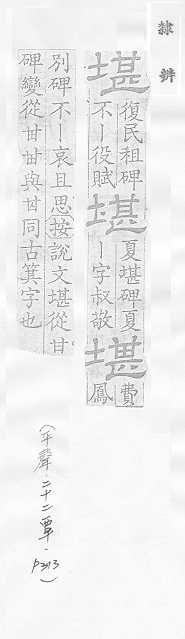 隸辨
堪
復民租碑
不丨役賦
堪
夏堪碑夏
丨字叔敬
堪
費
鳳
別碑不丨哀且思按說文堪從甘
碑變從甘甘與甘同古箕字也
（平聲·二十二覃·P313）